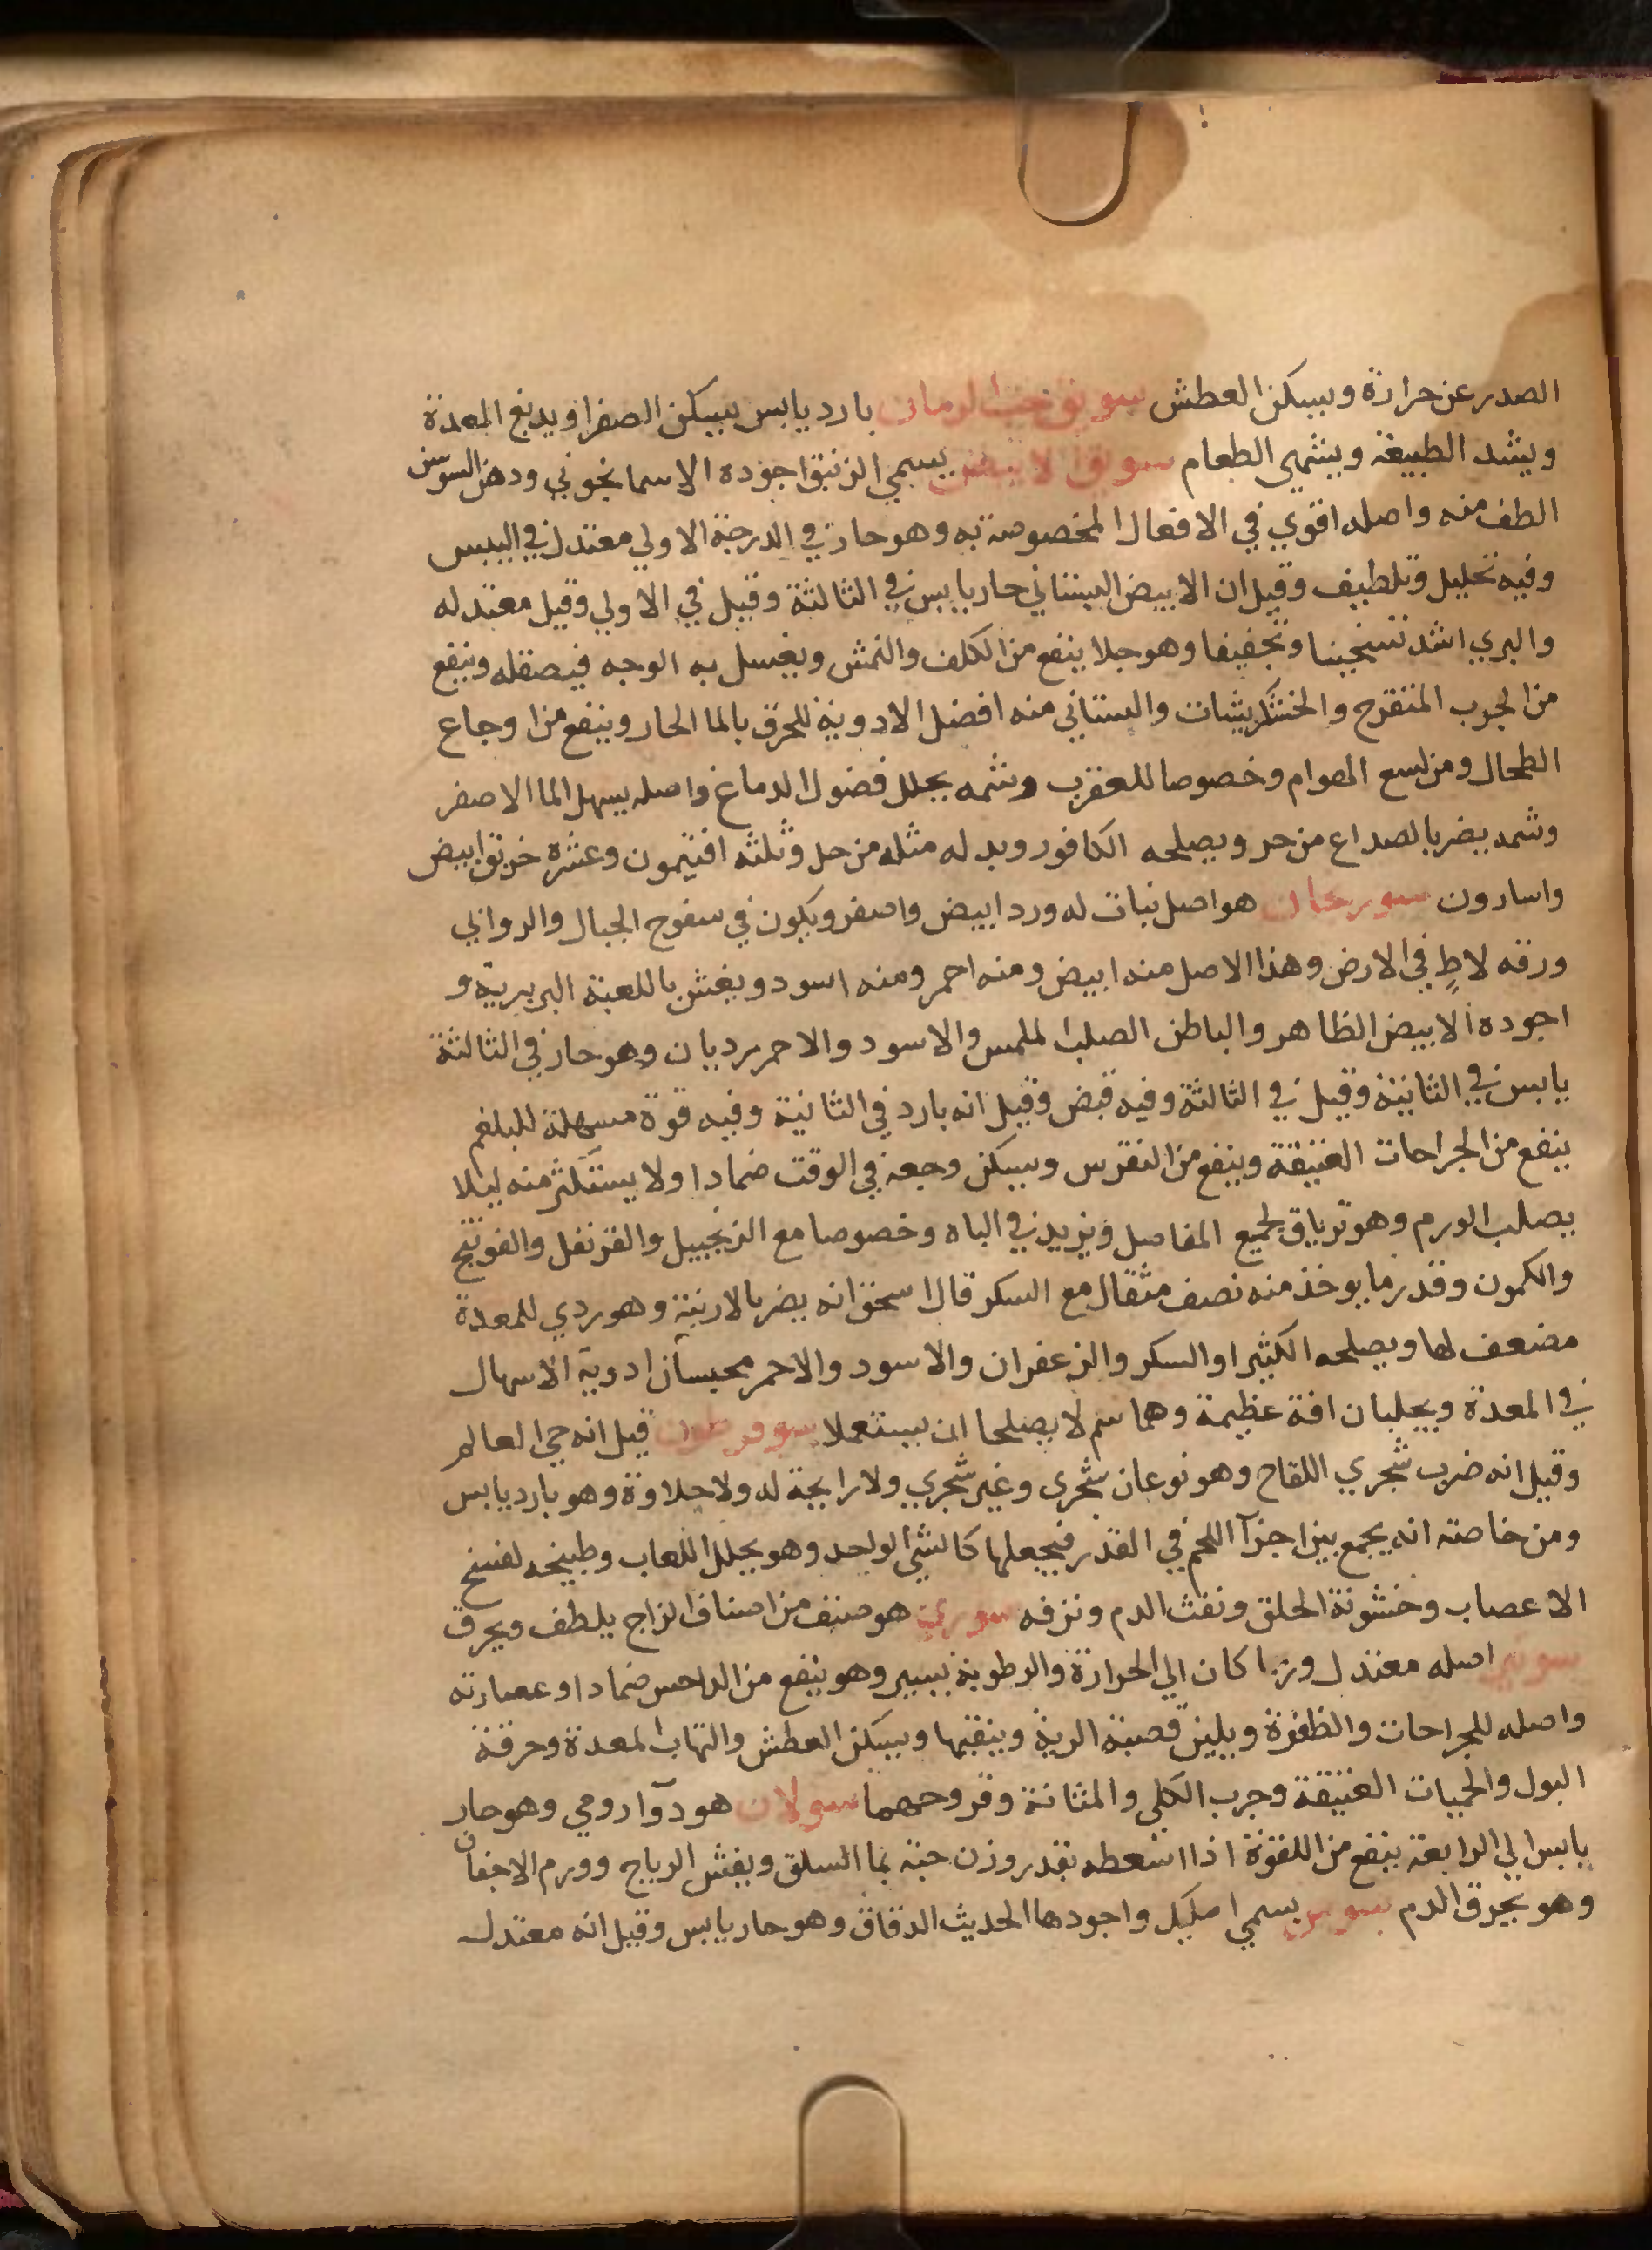 الصدر عن حرارة ويسكن العطش سويق حب الرمان بارد يابس يسكن الصفرا ويدبغ المعدة
ويشد الطبيعة ويشهي الطعام يسمي الزنبق اجوده الاسمانجوني ودهن السوسن
الطف منه واصله اقوي في الافعال المخصوصة به وهو حار في الدرجة الاولي معتدل في اليبس
وفيه تحليل وتلطيف وقيل ان الابيض البستاني حار يابس في الثالثة وقيل في الاولي وقيل معتدله
والبري اشد تسخينا وتجفيفا وهو جلا ينفع من الكلف والنمش ويغسل به الوجه فيصقله وينفع
من الجرب المتقرح والخشكريشات والبستاني منه افضل الادوية للحرق بالما الحار وينفع من اوجاع
الطحال ومن لسع الهوام وخصوصا للعقرب وشمه يحلل فضول الدماغ واصله يسهل الما الاصفر
وشمه يضر بالصداع من حر ويصلحه الكافور وبدله مثله من حل وثلثه افتيمون وعشره خربق ابيض
واسارون سورنجان هو اصل نبات له ورد ابيض واصفر ويكون في سفوح الجبال والروابي
ورقه لاطٍ في الارض وهذا الاصل منه ابيض ومنه احمر ومنه اسود ويغش باللعبة البربرية و
اجوده الابيض الظاهر والباطن الصلب الملمس والاسود والاحمر رديان وهو حار في الثالثة
يابس في الثانية وقيل في الثالثة وفيه قبض وقيل انه بارد في الثانية وفيه قوة مسهلة للبلغم
ينفع من الجراحات العتيقة وينفع من النقرس ويسكن وجعه في الوقت ضمادا ولا يستكثر منه ليلا
يصلب الورم وهو ترياق لجميع المفاصل ويزيد في الباه وخصوصا مع الزنجبيل والقرنفل والفوتنج
والكمون وقدر ما يوخذ منه نصف مثقال مع السكر قال اسحق انه يضر بالارنبة وهو ردي للمعدة
مضعف لها ويصلحه الكثيرا والسكر والزعفران والاسود والاحمر محبسان ادوية الاسهال
في المعدة ويجلبان افة عظيمة وهما سم لا يصلحا ان يستعملا قيل انه حي العالم
وقيل انه ضرب شجري اللقاح وهو نوعان شجري وغير شجري ولا رايحة له ولا حلاوة وهو بارد يابس
ومن خاصته انه يجمع بين اجزآ اللحم في القدر فيجعلها كالشي الواحد وهو يحلل اللعاب وطبيخه لفسخ
الاعصاب وخشونة الحلق ونفث الدم ونزفه سوري هو صنف من اصناف الزاج يلطف ويحرق
سوس اصله معتدل وربما كان الي الحرارة والرطوبة بيسير وهو ينفع من الداحس ضمادا وعصارته
واصله للجراحات والظفرة ويلين قصبة الرية وينقيها ويسكن العطش والتهاب المعدة وحرقة
البول والحميات العتيقة وجرب الكلي والمثانة وقروحهما سولان هو دوآ رومي وهو حار
يابس الي الرابعة ينفع من اللقوة اذا استعطه بقدر وزن حبة بما السلق ويفش الرياح وورم الاجفان
وهو يحرق الدم يسمي اصليل واجودها الحديث الدقاق وهو حار يابس وقيل انه معتدل